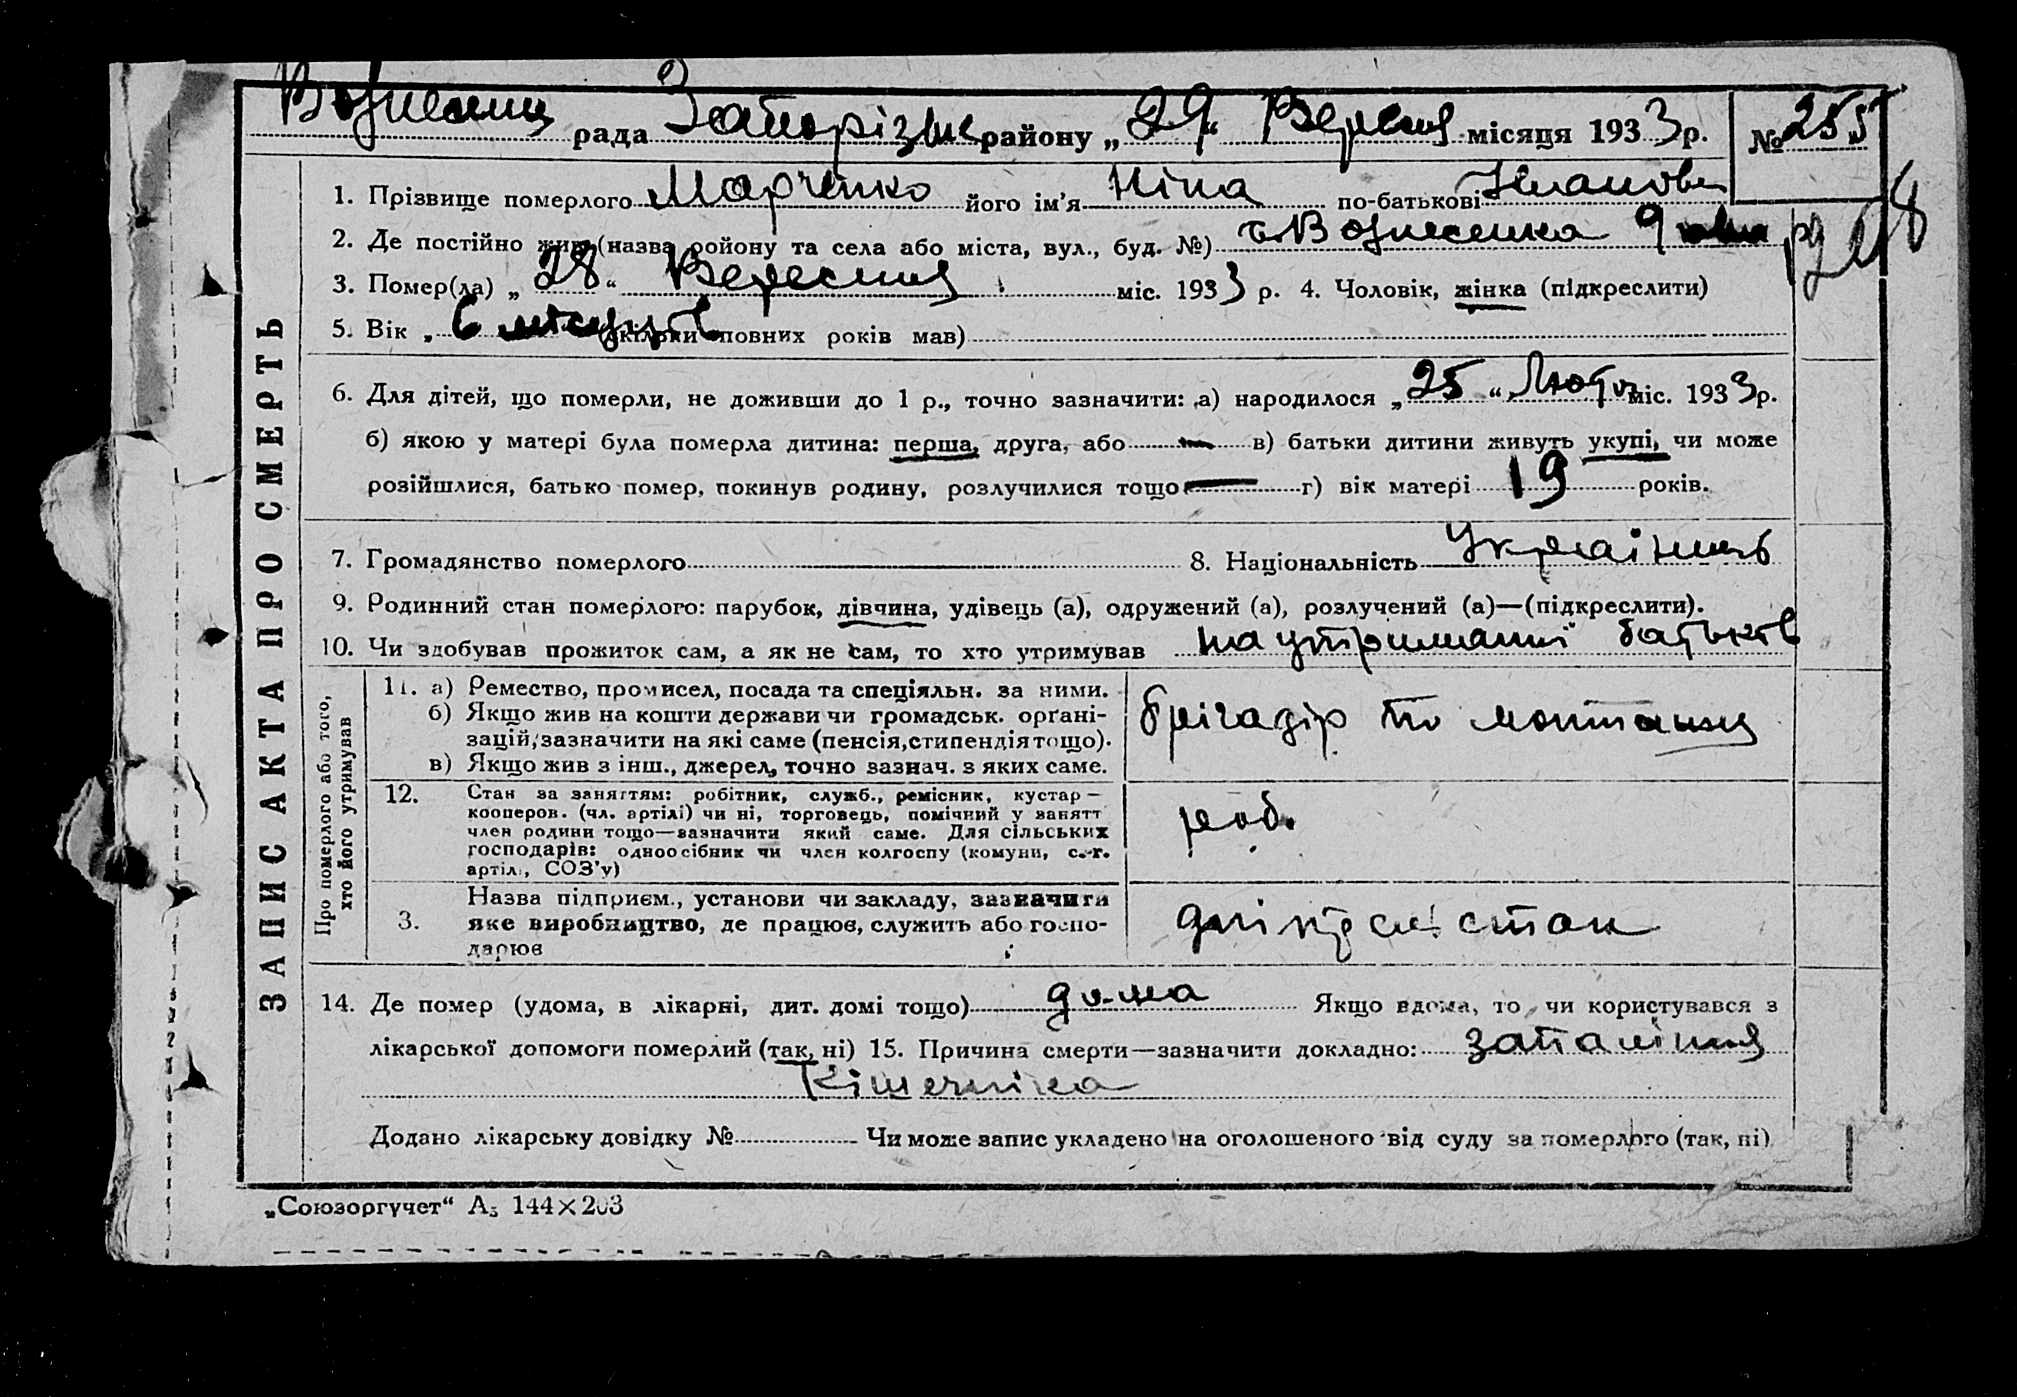 Вознесенц рада Запорізьке району „29“ Вересня місяця 1933 р. № 255
1. Прізвище померлого Марченко його ім’я Ніна по-батькові Івановн
2. Де постійно жив (назва ройону та села або міста, вул., буд. №) с. Вознесенка 9
3. Помер(ла) „28“ Вересня міс. 1933 р. 4. Чоловік, жінка (підкреслити)
5. Вік „ 6 місяців (скільки повних років мав)
6. Для дітей, що померли, не доживши до 1 р., точно зазначити: а) народилося „25“ Лютого міс. 1933 р.
б) якою у матері була померла дитина: перша, друга, або — в) батьки дитини живуть укупі, чи може
розійшлися, батько помер, покинув родину, розлучилися тощо — г) вік матері 19 років.
7. Громадянство померлого 8. Національність Українець
9. Родинний стан померлого: парубок, дівчина, удівець (а), одружений (а), розлучений (а)—(підкреслити).
10. Чи здобував прожиток сам, а як не сам, то хто утримував на утриманні батьків
ЗАПИС АКТА ПРО СМЕРТЬ
Про померлого або того,
хто його утримував
11. а) Ремество, промисел, посада та спеціяльн. за ними.
б) Якщо жив на кошти держави чи громадськ. орґані-
зацій, зазначити на які саме (пенсія, стипендія тощо).
в) Якщо жив з інш., джерел, точно зазнач. з яких саме.
брігадір по монтажу
12. Стан за заняттям: робітник, служб., ремісник, кустар—
кооперов. (чл. артілі) чи ні, торговець, помічний у занятт
член родини тощо—зазначити який саме. Для сільських
господарів: одноосібник чи член колгоспу (комуни, с.-г.
артіл., СОЗ’у)
роб.
3. Назва підприєм., установи чи закладу, зазначити
яке виробництво, де працює, служить або госпо-
дарює
14. Де помер (удома, в лікарні, дит. домі тощо) дома Якщо вдома, то чи користувався з
лікарської допомоги померлий (так, ні) 15. Причина смерти—зазначити докладно: запаління
Кішечніка
Додано лікарську довідку № Чи може запис укладено на оголошеного від суду за померлого (так, ні)
„Союзоргучет“ А₅ 144×203